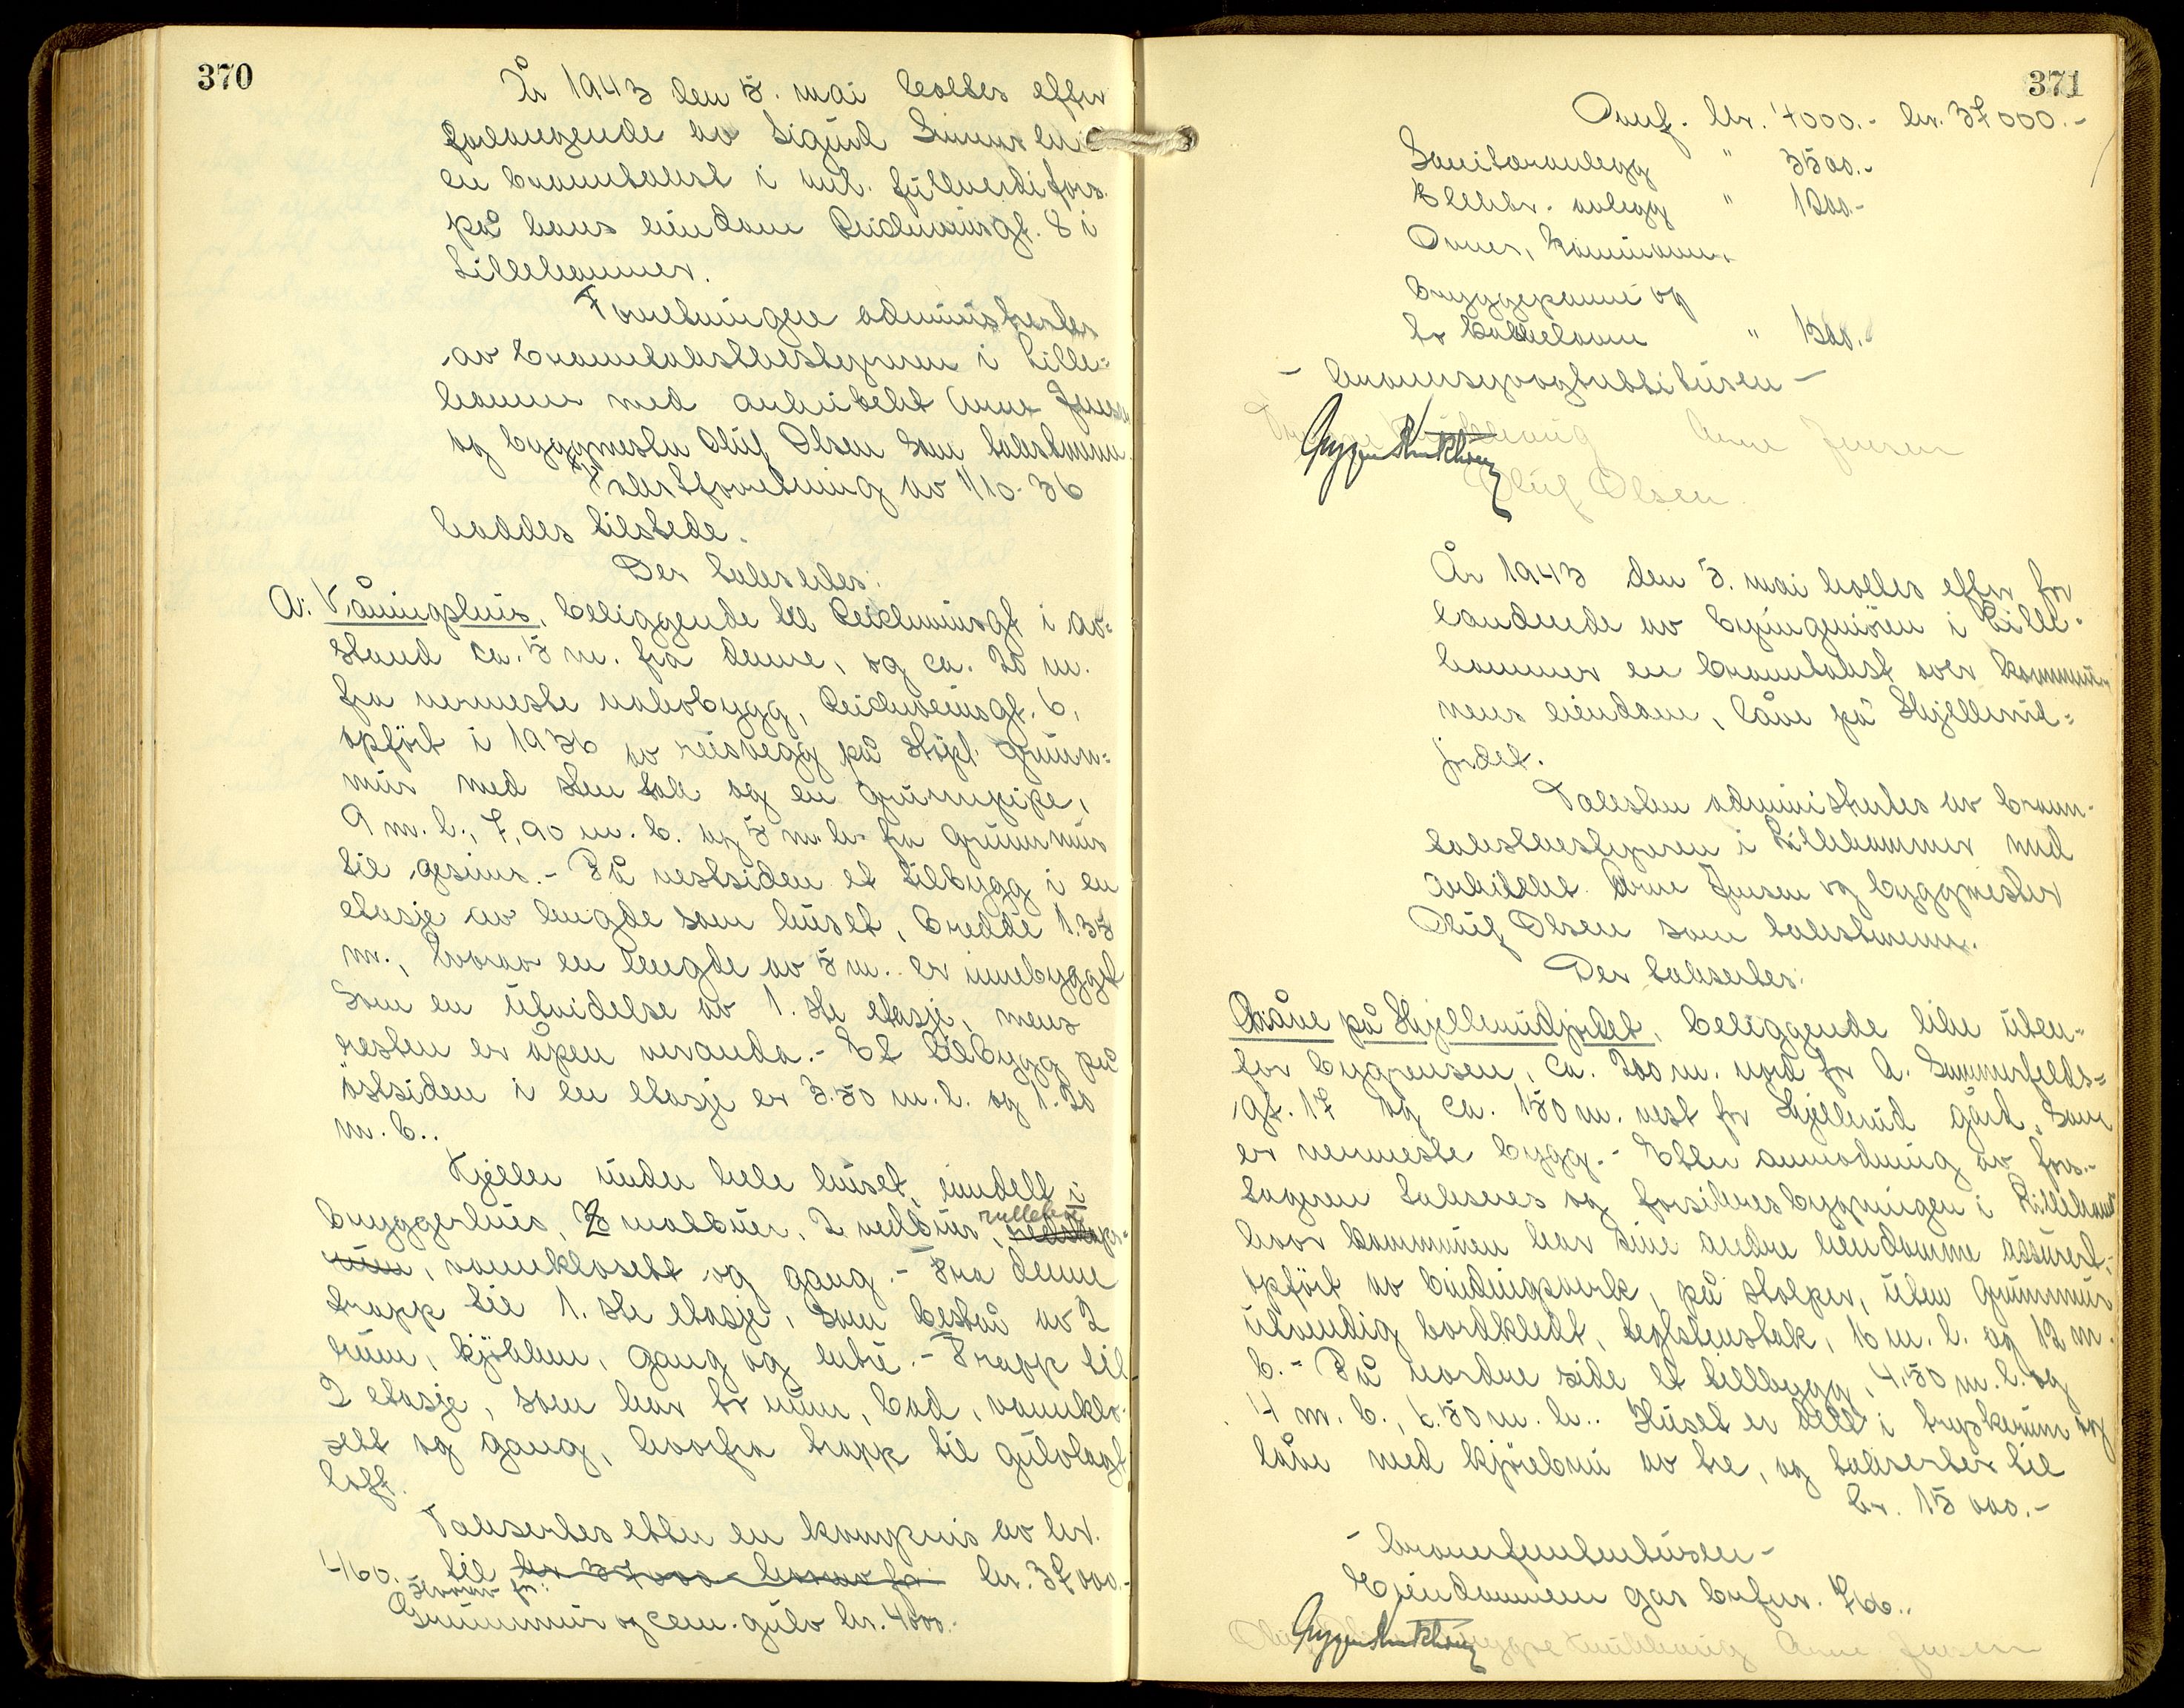 370
År 1943 den 5. mai holtes efter
forlangende av Sigurd
en branntakst i h.t. fullverdifors.
på hans eiendom Reichweinsgt. 8 i
Lillehammer.
Forretningen administrertes
av branntakstbestyreren i Lille=
hammer med arkitekt Arne Jensen
og byggmester Oluf Olsen som takstmenn.
Takstforretning av 1/10-36
haddes tilstede.
Der takseertes:
A: Våningshus, beliggende til Reichweinsgt i av=
stand ca. 5 m. fra denne, og ca. 20 m.
fra nermeste nabobygg, Reichweinsgt. 6,
opført i 1936 av reisvegg på støpt grunn=
mur med sten tak og en grunnpipe,
9 m. l., 7,90 m. b. og 5 m. h. fra grunnmur
til gesims. - På vestsiden et tilbygg i en
etasje av lengde som huset, bredde 1.35
m., hvorav en lengde av 5 m. er innebygget
som en utvidelse av 1. ste etasje, mens
resten er åpen veranda. - Et tilbygg på
østsiden i en etasje er 3.50 m. l. og 1.20
m. b..
Kjeller under hele huset, inndelt i
bryggerhus, 2 matbuer, 2 vedbuer, rullebu redskaps=
rum, vannklosett og gang. - Fra denne
trapp til 1. ste etasje, som består av 2
rum, kjøkken, gang og entre. - Trapp til
2 etasje, som har tr rum, bad, vannklo-
sett og gang, hvorfra trapp til gulvlagt
loft.
Takseertes etter en kompris av kr.
460.- til kr 37000 - hvorav for kr. 37000.-
Hvorav for:
Grunnmur og cem. gulv kr. 4000.-
371
Overf. kr. 4000.- kr. 37000.-
Sanitæranlegg " 3500.-
Elektr. anlegg " 1200.-
Ovner, kaminovn,
bryggepanne og
tr kakkelovn " 1300.-
- brannsynsgtattituren -
Arne Jensen
Oluf Olsen.
År 1943 den 5. mai holtes efter for
landnede av byingeniøren i Lille=
hammer en branntakst over kommu=
nens eiendom, låve på Skjellerud=
jordet.
Taksten administrertes av brann-
takstbestyreren i Lillehammer med
arkitekt Arne Jensen og byggmester
Oluf Olsen som takstmenn.
Der takseertes:
Låve på Skjellerudjordet, beliggende like uten=
for bygrensen, ca. 200 m. nord for A. Sommerfelds=
gt. 17 og ca. 150 m. vest for Skjellerud gård, som
er nermeste bygg. - Etter anmodning av fors.-
tageren takseres og forsikres bygningen i Lillehammer
hvor kommunen har sine andre eiendomme assurert.
opført av bindingsverk, på stolper, uten grunnmur
utvendig bordkledt, teglstenstak, 16 m. l. og 12 m.
b. - På nordre side et tilbygg, 4,50 m. l. og
4 m. b., 6.50 m. h.. Huset er delt i tryskerum og
låve med kjørebru av tre, og takseertes til
kr. 15 000.-
Eiendommen gas brfnr. 766..
Arne Jensen